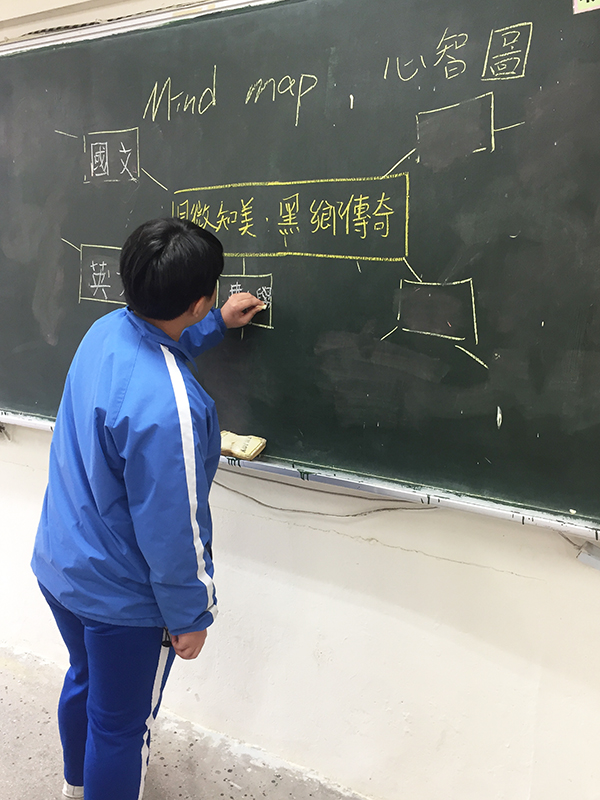 Mind map . 心智圖
國文
見微知美.黑鄉傳奇
英
數學